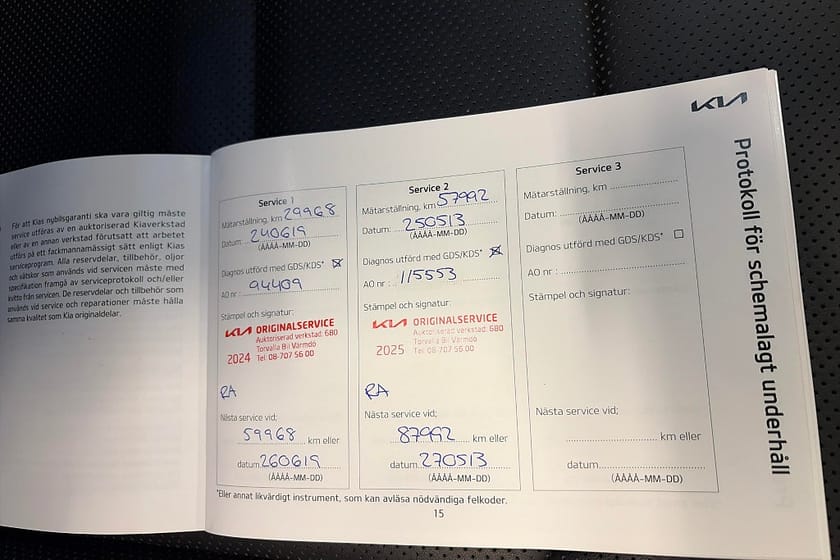 För att Kias nybilsgaranti ska vara giltig måste
service utföras av en auktoriserad Kiaverkstad
eller av en annan verkstad förutsatt att arbetet
utförs på ett fackmannamässigt sätt enligt Kias
serviceprogram. Alla reservdelar, tillbehör, oljor
och vätskor som används vid servicen måste med
specifikation framgå av serviceprotokoll och/eller
kvitto från servicen. De reservdelar och tillbehör som
används vid service och reparationer måste hålla
samma kvalitet som Kia originaldelar.
KIA
Protokoll för schemalagt underhåll
Service 1
Mätarställning, km 29968
Datum: 240619
(ÅÅÅÅ-MM-DD)
Diagnos utförd med GDS/KDS*
AO nr : 94409
Stämpel och signatur:
KIA ORIGINALSERVICE
Auktoriserad verkstad: 680
Torvalla Bil Värmdö
2024 Tel: 08-707 56 00
RA
Nästa service vid;
59968 km eller
datum 260619
(ÅÅÅÅ-MM-DD)
Service 2
Mätarställning, km 57992
Datum: 250513
(ÅÅÅÅ-MM-DD)
Diagnos utförd med GDS/KDS*
AO nr : 115553
Stämpel och signatur:
KIA ORIGINALSERVICE
Auktoriserad verkstad: 680
Torvalla Bil Värmdö
2025 Tel: 08-707 56 00
RA
Nästa service vid;
87992 km eller
datum 270513
(ÅÅÅÅ-MM-DD)
Service 3
Mätarställning, km
Datum:
(ÅÅÅÅ-MM-DD)
Diagnos utförd med GDS/KDS*
AO nr :
Stämpel och signatur:
Nästa service vid;
km eller
datum
(ÅÅÅÅ-MM-DD)
*Eller annat likvärdigt instrument, som kan avläsa nödvändiga felkoder.
15